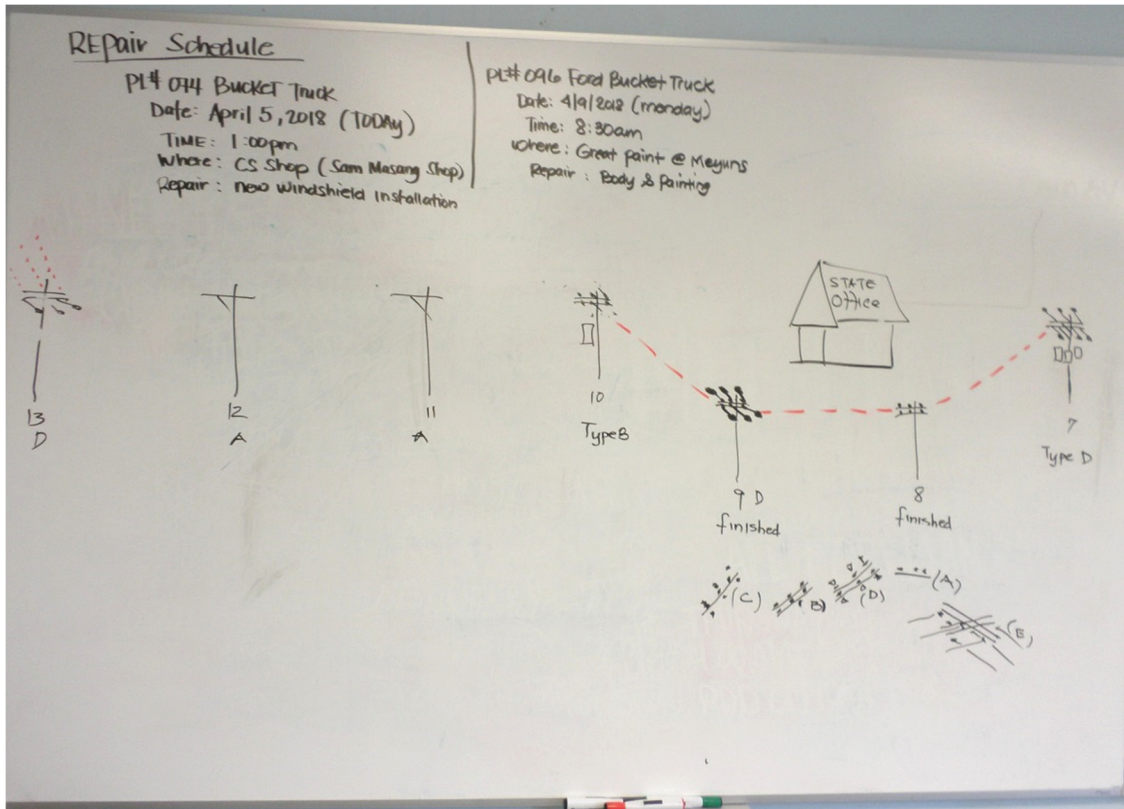 REpair Schedule
PL# 044 BUCKET Truck
Date: April 5, 2018 (TODAY)
TIME: 1:00pm
Where: CS Shop (Sam Masang Shop)
Repair: new windshield Installation
PL# 096 Ford Bucket Truck
Date: 4/9/2018 (monday)
Time: 8:30am
Where: Great paint @ Meyuns
Repair: Body & Painting
STATE
Office
13
D
12
A
11
A
10
Type B
9 D
finished
8
finished
7
Type D
(C)
(B)
(D)
(A)
(E)